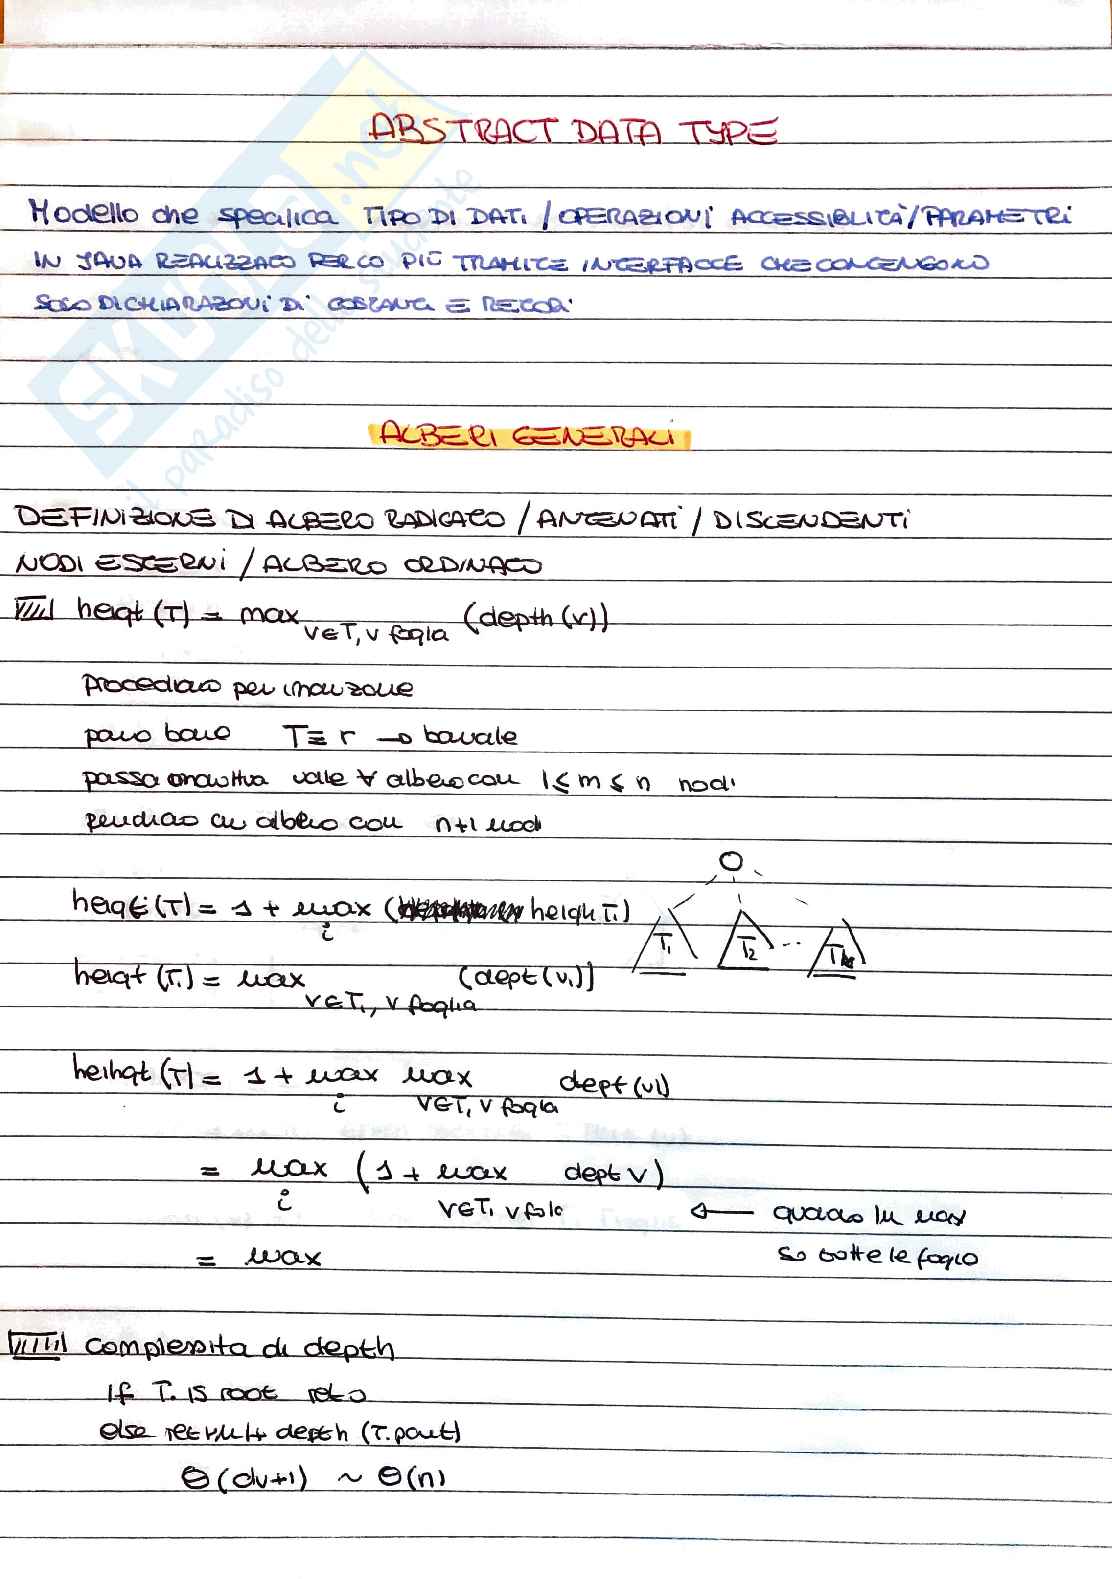 ABSTRACT DATA TYPE
Modello che specifica TIPO DI DATI / OPERAZIONI ACCESSIBLITÀ/PARAMETRI
IN JAVA REALIZZATO PERLO PIÙ TRAMITE INTERFACCE CHE CONTENGONO
SOLO DICHIARAZONI DI COSTANTI E METODI
ALBERI GENERALI
DEFINIZIONE DI ALBERO RADICATO / ANTENATI / DISCENDENTI
NODI ESTERNI / ALBERO ORDINATO
heigt (T) = max (depth (v))
v∈T, v fogla
Procediamo per induzione
passo base T≡ r → banale
passo induttivo vale ∀ albero con 1≤ m ≤ n nodi
prendiamo un albero con n+1 nodi
heigt (T) = 1 + max ( heigh Ti)
i
T1 T2 .. Tk
heigt (Ti) = max (dept (vi)]
v∈Ti, v foglia
heihgt (T) = 1 + max max dept (vi)
i v∈Ti v fogla
= max (1 + max dept v)
i v∈Ti v fogla
← quando in max
so tutte le foglie
= max
complessita di depth
If T. is root ret 0
else return 1+ depth (T. parent)
Θ(dv+1) ~ Θ(n)
SKUOLA.net
il paradiso dello studente